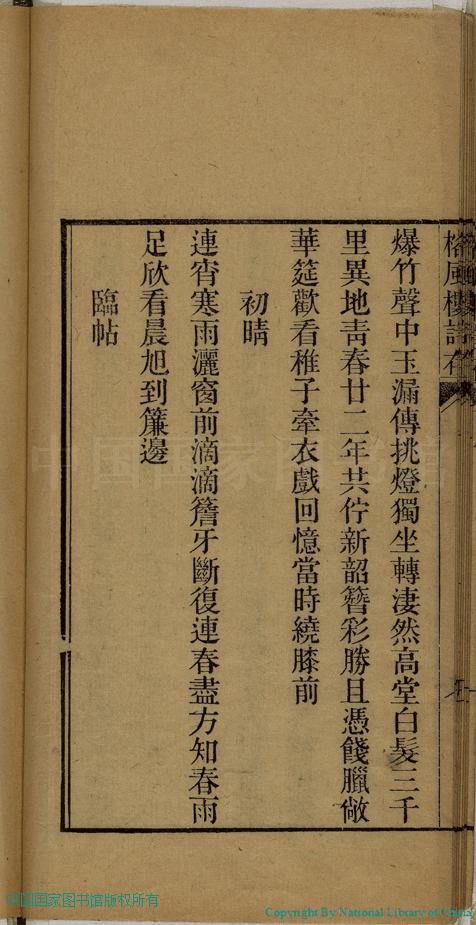 爆竹聲中玉漏傳挑燈獨坐轉淒然高堂白髮三千
里異地靑春廿二年共佇新韶簪彩勝且憑餞臘敞
華筵歡看稚子牽衣戲回憶當時繞膝前
初晴
連宵寒雨灑窗前滴滴簷牙斷復連春盡方知春雨
足欣看晨旭到簾邊
臨帖
中国国家图书馆版权所有
Copyright By National Library of China